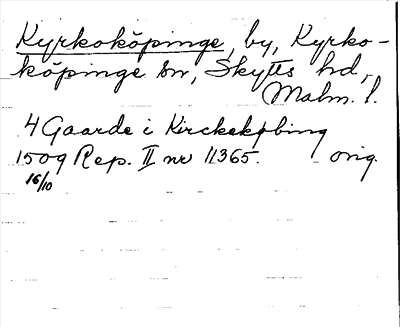 Kyrkoköpinge, by, Kyrko-
köpinge sn, Skytts hd,
Malm. l.
4 Gaarde i Kirckekøbing
1509 Rep. II nr 11365. orig.
16/10